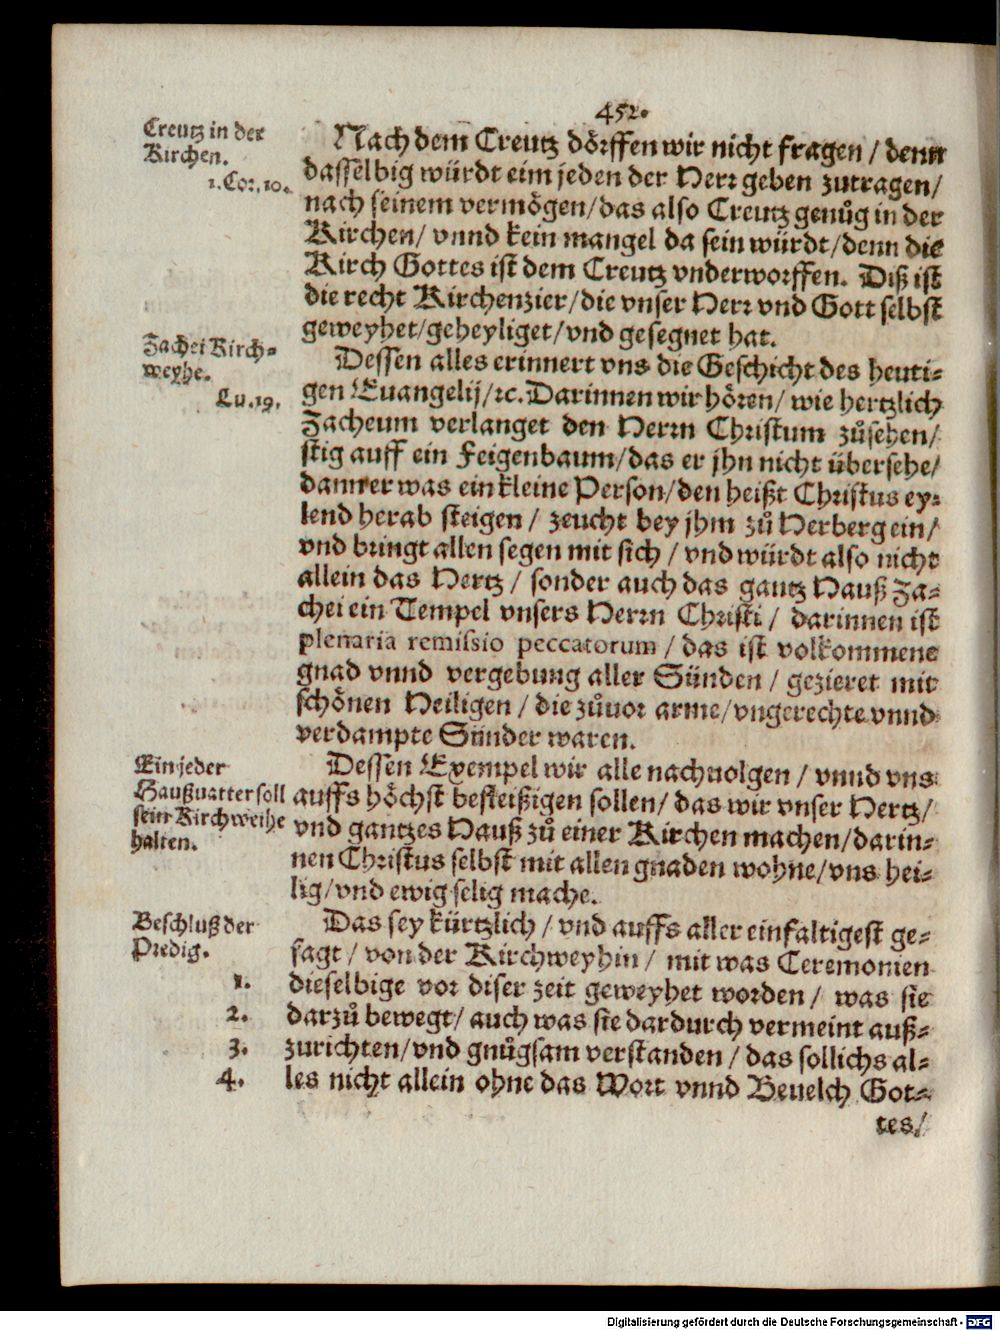 452.
Creutz in der
Kirchen.
1. Cor. 10.
Nach dem Creutz dörffen wir nicht fragen / denn
dasselbig würdt eim jeden der Herr geben zutragen/
nach seinem vermögen/das also Creutz genůg in der
Kirchen/ vnnd kein mangel da sein würdt/denn die
Kirch Gottes ist dem Creutz vnderworffen. Diß ist
die recht Kirchenzier/die vnser Herr vnd Gott selbst
geweyhet/geheyliget/vnd gesegnet hat.
Zachei Kirch-
weyhe.
Lu. 19.
Dessen alles erinnert vns die Geschicht des heuti-
gen Euangelij/ꝛc. Darinnen wir hören/ wie hertzlich
Zacheum verlanget den Herrn Christum zůsehen/
stig auff ein Feigenbaum/das er jhn nicht übersehe/
dann er was ein kleine Person/den heißt Christus ey-
lend herab steigen / zeucht bey jhm zů Herberg ein/
vnd bringt allen segen mit sich / vnd würdt also nicht
allein das Hertz / sonder auch das gantz Hauß Za-
chei ein Tempel vnsers Herrn Christi / darinnen ist
plenaria remissio peccatorum / das ist volkommene
gnad vnnd vergebung aller Sünden / gezieret mit
schönen Heiligen / die zůuor arme/vngerechte vnnd
verdampte Sünder waren.
Ein jeder
Haußuatter soll
sein Kirchweihe
halten.
Dessen Exempel wir alle nachuolgen / vnnd vns
auffs höchst befleißigen sollen/ das wir vnser Hertz/
vnd gantzes Hauß zů einer Kirchen machen/darin-
nen Christus selbst mit allen gnaden wohne/vns hei-
lig/vnd ewig selig mache.
Beschluß der
Predig.
Das sey kürtzlich / vnd auffs aller einfaltigest ge-
sagt / von der Kirchweyhin / mit was Ceremonien
1. dieselbige vor diser zeit geweyhet worden / was sie
2. darzů bewegt/ auch was sie dardurch vermeint auß-
3. zurichten/vnd gnůgsam verstanden / das sollichs al-
4. les nicht allein ohne das Wort vnnd Beuelch Got-
tes/
Digitalisierung gefördert durch die Deutsche Forschungsgemeinschaft - DFG